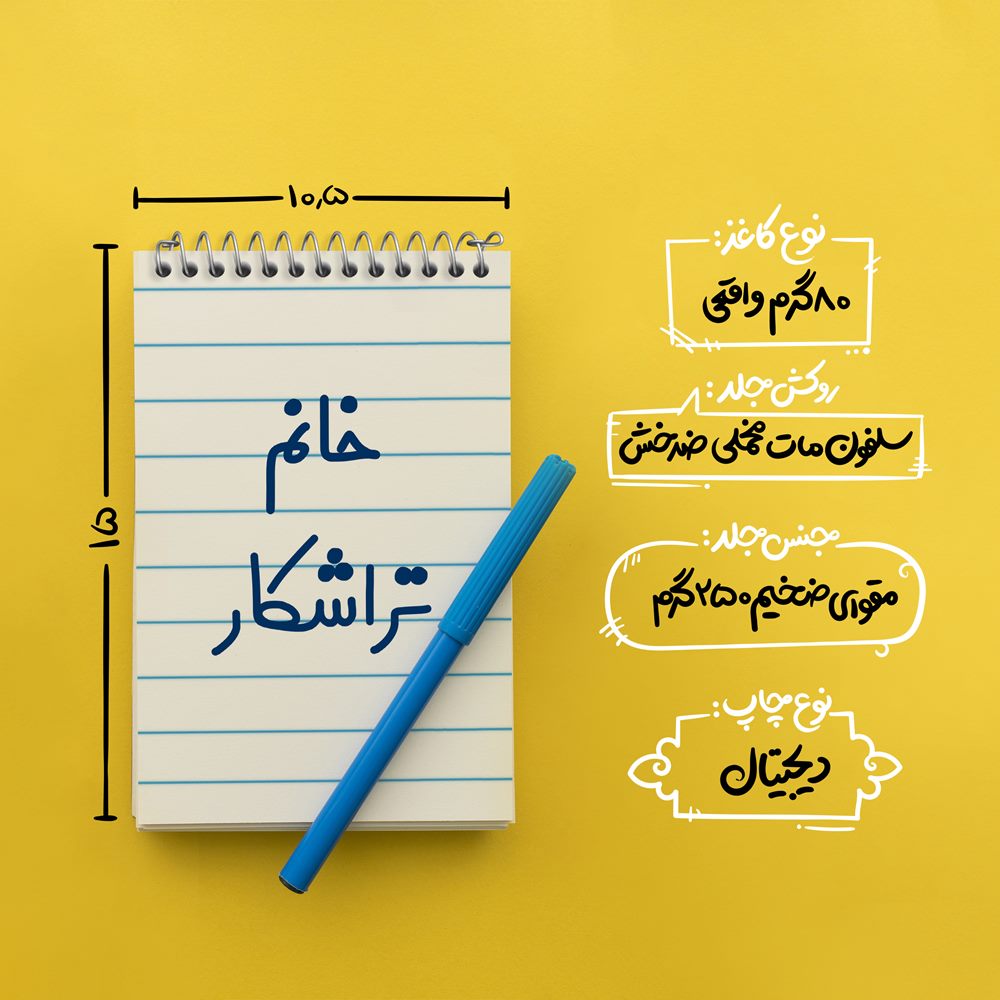 ۱۰٫۵
۱۵
خانم
تراشکار
نوع کاغذ:
۸۰گرم واقعی
روکش جلد:
سلفون مات مخملی ضدخش
جنس جلد:
مقوای ضخیم ۲۵۰گرم
نوع چاپ:
دیجیتال